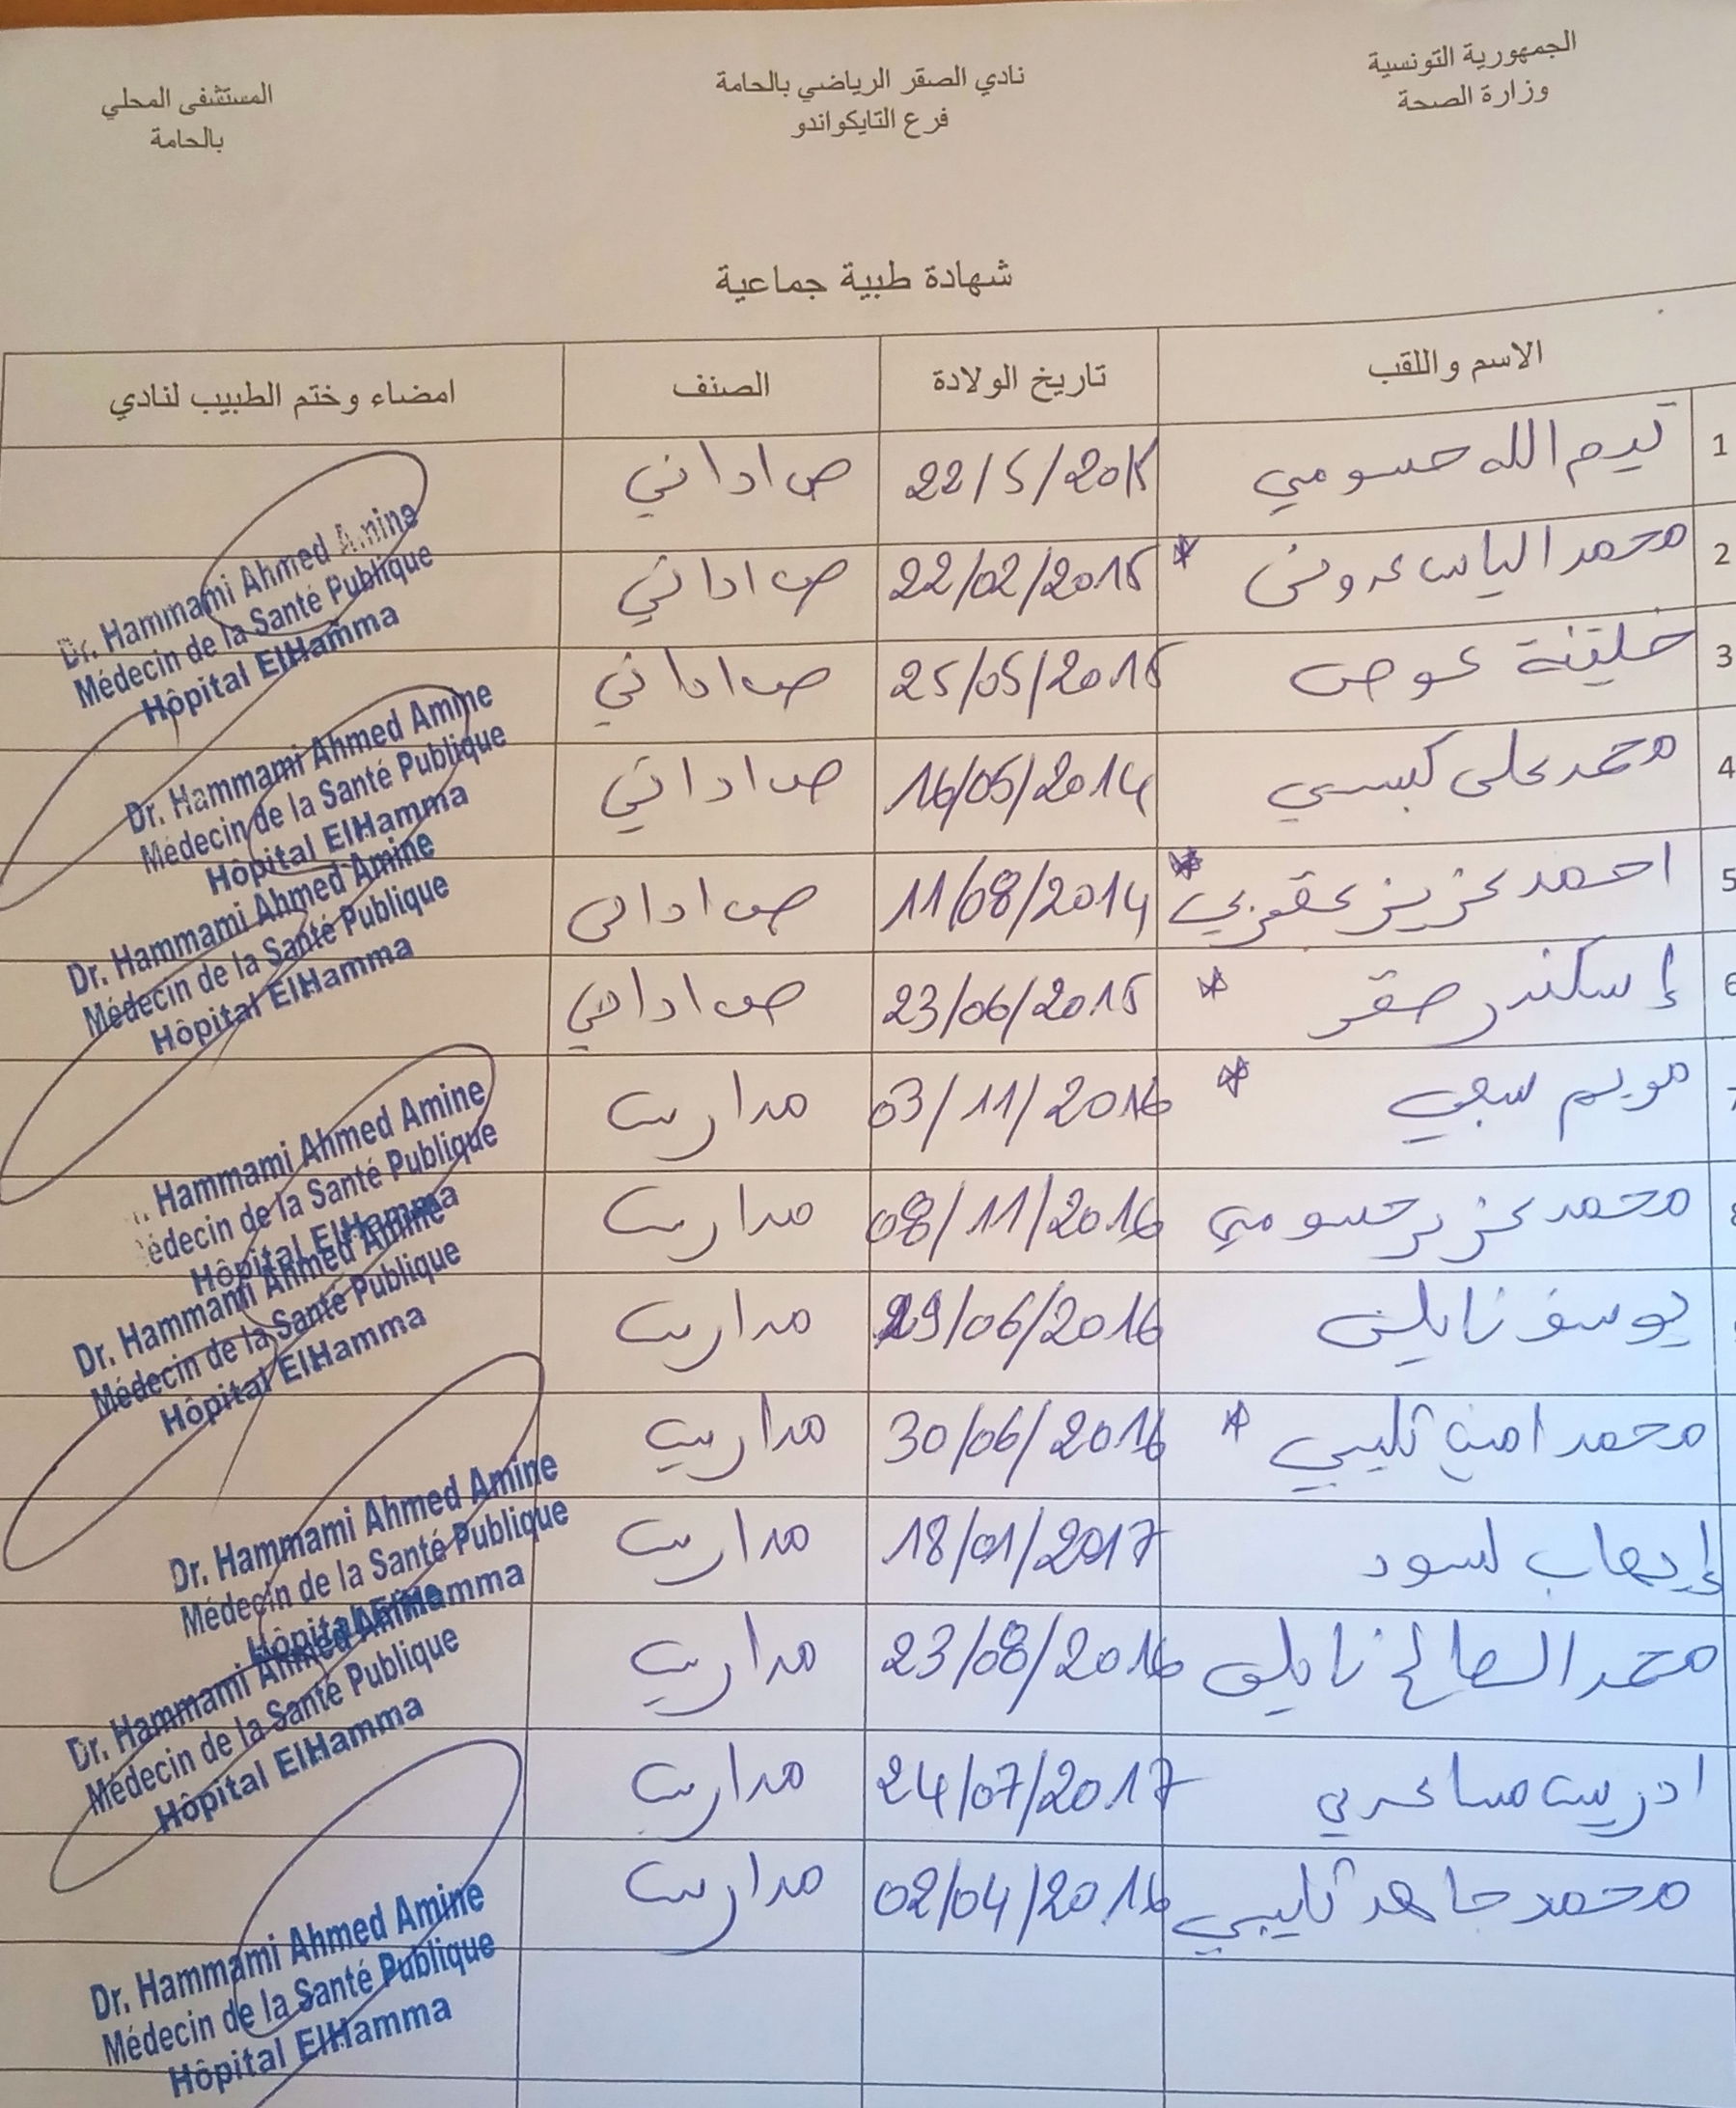 الجمهورية التونسية
وزارة الصحة
نادي الصقر الرياضي بالحامة
فرع التايكواندو
المستشفى المحلي
بالحامة
شهادة طبية جماعية
الاسم واللقب تاريخ الولادة الصنف امضاء وختم الطبيب لنادي
1 تيم الله حسومي 22/5/201 ص اداني
2 محمد الياس * 22/02/2015 ص اداني
3 عوض 25/05/2015 ص اداني
4 محمد علي كبسي 16/05/2014 ص اداني
5 احمد عزيز عقربي * 11/08/2014 ص اداني
6 إسكندر صقر * 23/06/2015 ص اداني
مريم سبعي * 03/11/2016 مدارس
محمد عزيز حسومي 08/11/2016 مدارس
يوسف نايلي 29/06/2016 مدارس
محمد امين تليبي * 30/06/2016 مدارس
إيهاب لسود 18/01/2017 مدارس
محمد الصالح نايلي 23/08/2016 مدارس
ادريس مساعدي 24/07/2017 مدارس
محمد جاهد تليبي 02/04/2016 مدارس
Dr. Hammami Ahmed Amine
Médecin de la Santé Publique
Hôpital ElHamma
Dr. Hammami Ahmed Amine
Médecin de la Santé Publique
Hôpital ElHamma
Dr. Hammami Ahmed Amine
Médecin de la Santé Publique
Hôpital ElHamma
Hammami Ahmed Amine
édecin de la Santé Publique
Hôpital ElHamma
Dr. Hammami Ahmed Amine
Médecin de la Santé Publique
Hôpital ElHamma
Dr. Hammami Ahmed Amine
Médecin de la Santé Publique
Hôpital ElHamma
Dr. Hammami Ahmed Amine
Médecin de la Santé Publique
Hôpital ElHamma
Dr. Hammami Ahmed Amine
Médecin de la Santé Publique
Hôpital ElHamma